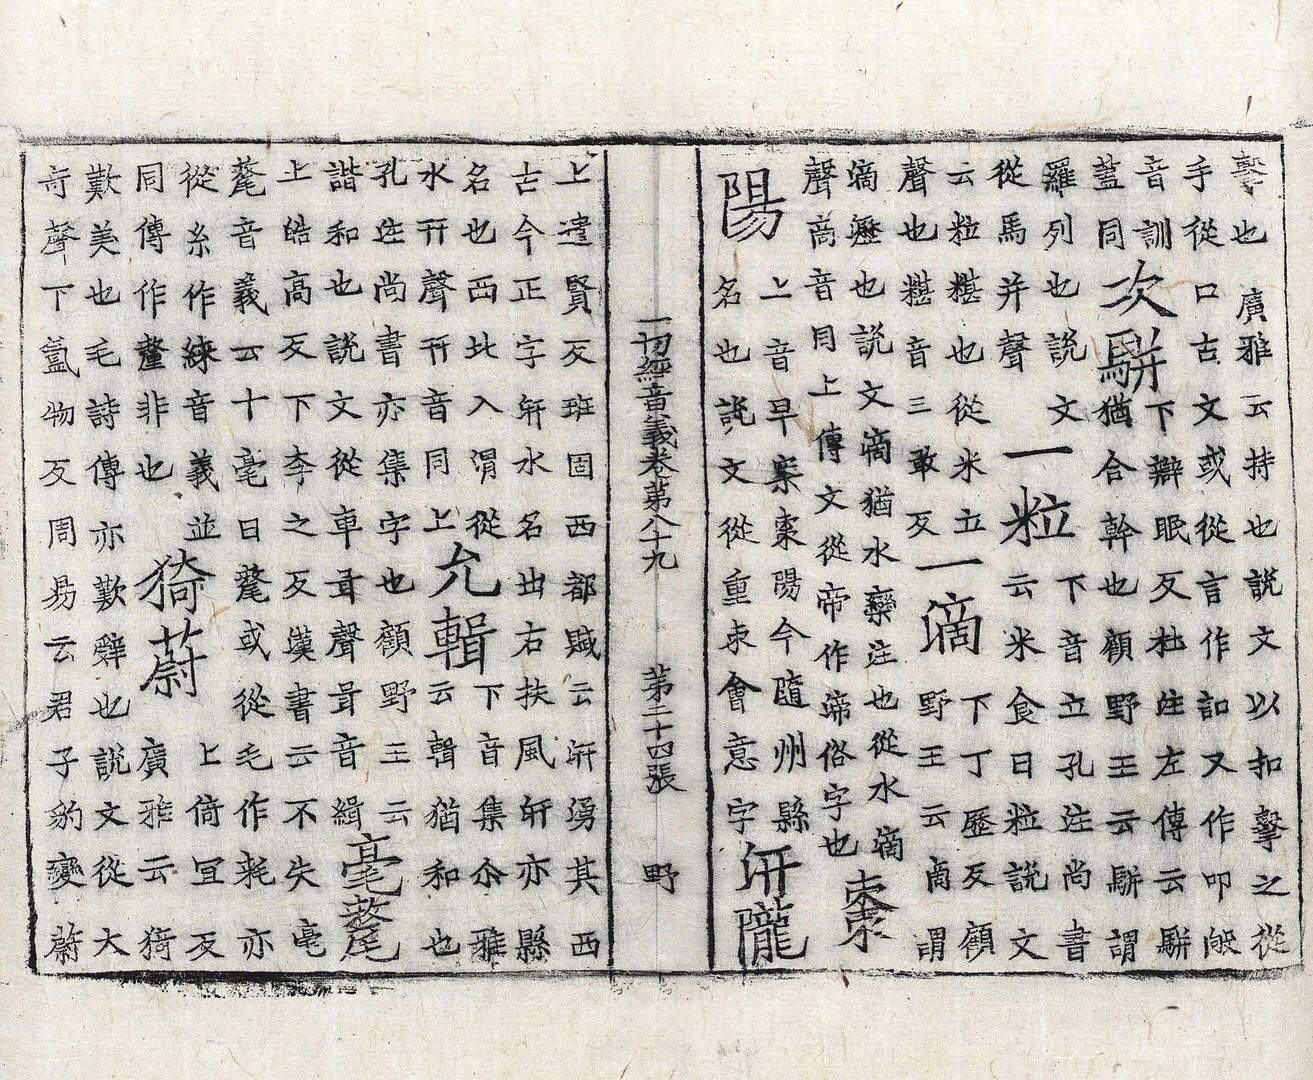 擊也廣雅云持也說文以扣擊之從
手從口古文或從言作訆又作叩敂
音訓
蓋同
次駢
下辯眠反杜注左傳云駢
猶合幹也顧野王云駢謂
羅列也說文
從馬并聲
一粒
下音立孔注尚書
云米食曰粒說文
云粒糂也從米立
聲也糂音三敢反
一滴
下丁歷反顧
野王云滴謂
滴瀝也說文滴猶水欒注也從水滴
聲啇音同上傳文從帝作渧俗字也
棗
陽
上音早案棗陽今隨州縣
名也說文從重朿會意字
汧隴
一切經音義卷第八十九 第二十四張 野
上遣賢反班固西都賦云汧湧其西
古今正字汧水名出右扶風汧亦縣
名也西北入渭從
水幵聲幵音同上
允輯
下音集尒雅
云輯猶和也
孔注尚書亦集字也顧野王云
諧和也說文從車咠聲咠音緝
毫氂
上皓高反下李之反漢書云不失毫
氂音義云十毫曰氂或從毛作耗亦
從糸作綀音義並
同傳作釐非也
猗蔚
上倚宜反
廣雅云猗
歎美也毛詩傳亦歎辭也說文從犬
奇聲下氳物反周易云君子豹變蔚